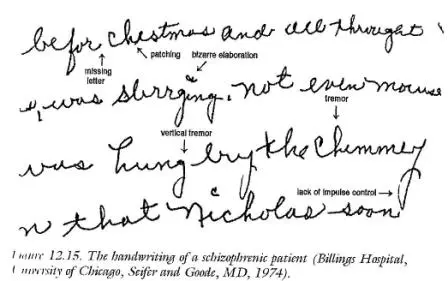 befor chestmas and all throught
missing
letter
patching
bizarre elaboration
was not even mouse
tremor
vertical tremor
was hung bry the Chimmey
lack of impulse control
n that Nicholas soon
12.15. The handwriting of a schizophrenic patient (Billings Hospital,
University of Chicago, Seifer and Goode, MD, 1974).